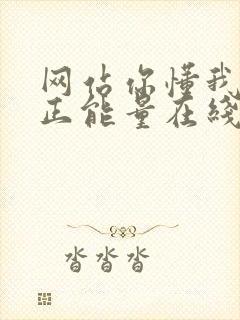 网站你懂我
正能量在线
沓沓沓